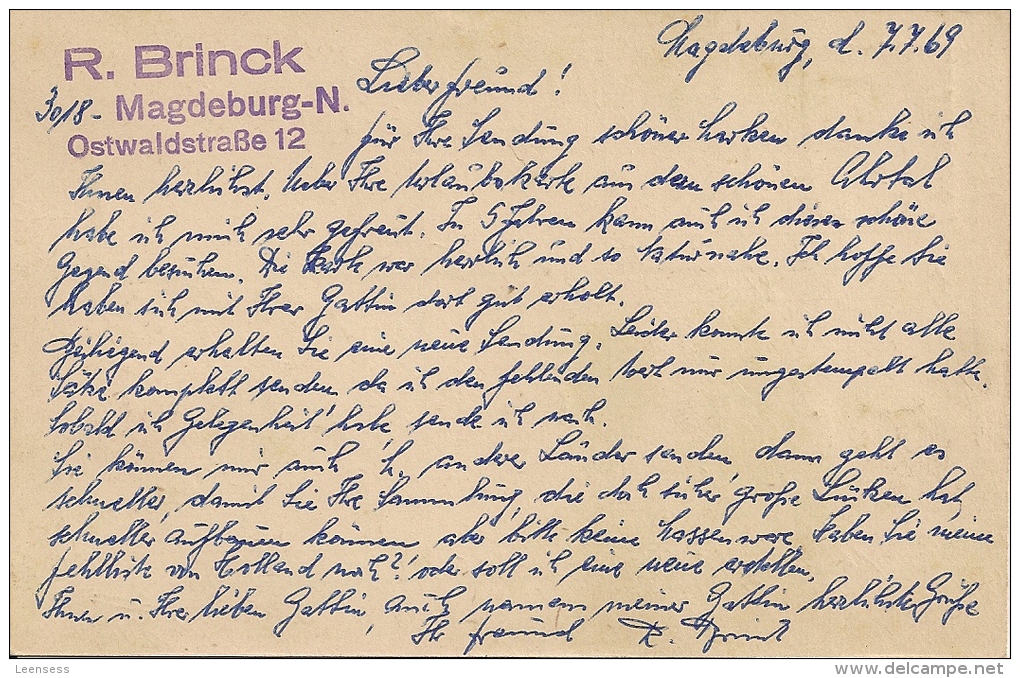 Magdeburg, d. 7.7.69
R. Brinck
3018 - Magdeburg-N.
Ostwaldstraße 12
Lieber Freund!
Für Ihre Sendung schöner Marken danke ich
Ihnen herzlichst. Ueber Ihre Urlaubskarte aus dem schönen Ahrtal
habe ich mich sehr gefreut. In 5 Jahren kann auch ich diese schöne
Gegend besuchen. Die Karte war herrlich und so Naturnahe. Ich hoffe Sie
haben sich mit Ihrer Gattin dort gut erholt.
Beiliegend erhalten Sie eine neue Sendung. Leider konnte ich nicht alle
Sätze komplett senden da ich den fehlenden Wert nur ungestempelt hatte.
Sobald ich Gelegenheit habe sende ich nach.
Sie können mir auch anderer Länder senden, dann geht es
schneller, damit Sie Ihre Sammlung, die doch sicher große Lücken hat,
schneller aufbauen können aber bitte keine Massenware. Haben Sie meine
Fehlliste von Holland noch?! oder soll ich eine neue erstellen.
Ihnen u. Ihrer lieben Gattin, auch namens meiner Gattin herzlichste Grüße
Ihr Freund R. Brinck
Leensess
www.delcampe.net